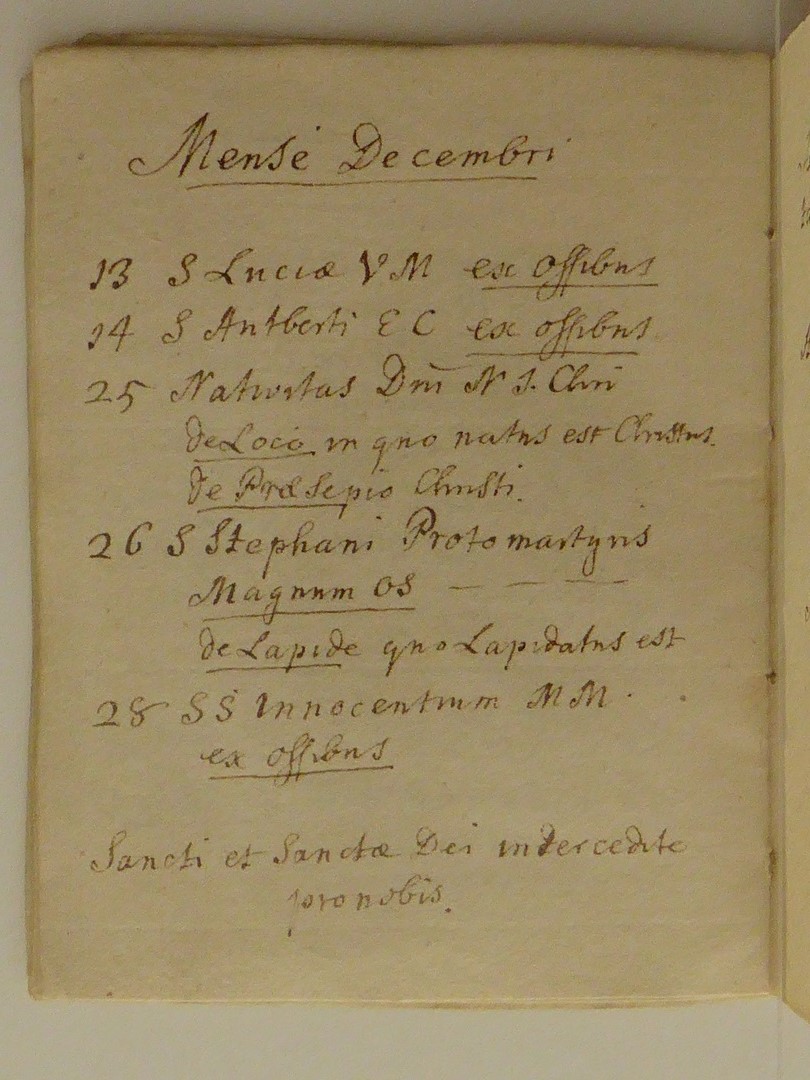 Mense Decembri
13 S Luciæ V M ex ossibus
14 S Autberti E C ex ossibus
25 Nativitas Dni N J. Chri
de Loco in quo natus est Christus.
de Præsepio Christi.
26 S Stephani Protomartyris
Magnum OS — — —
de Lapide quo Lapidatus est
28 SS Innocentium MM.
ex ossibus
Sancti et Sanctæ Dei intercedite
pro nobis.